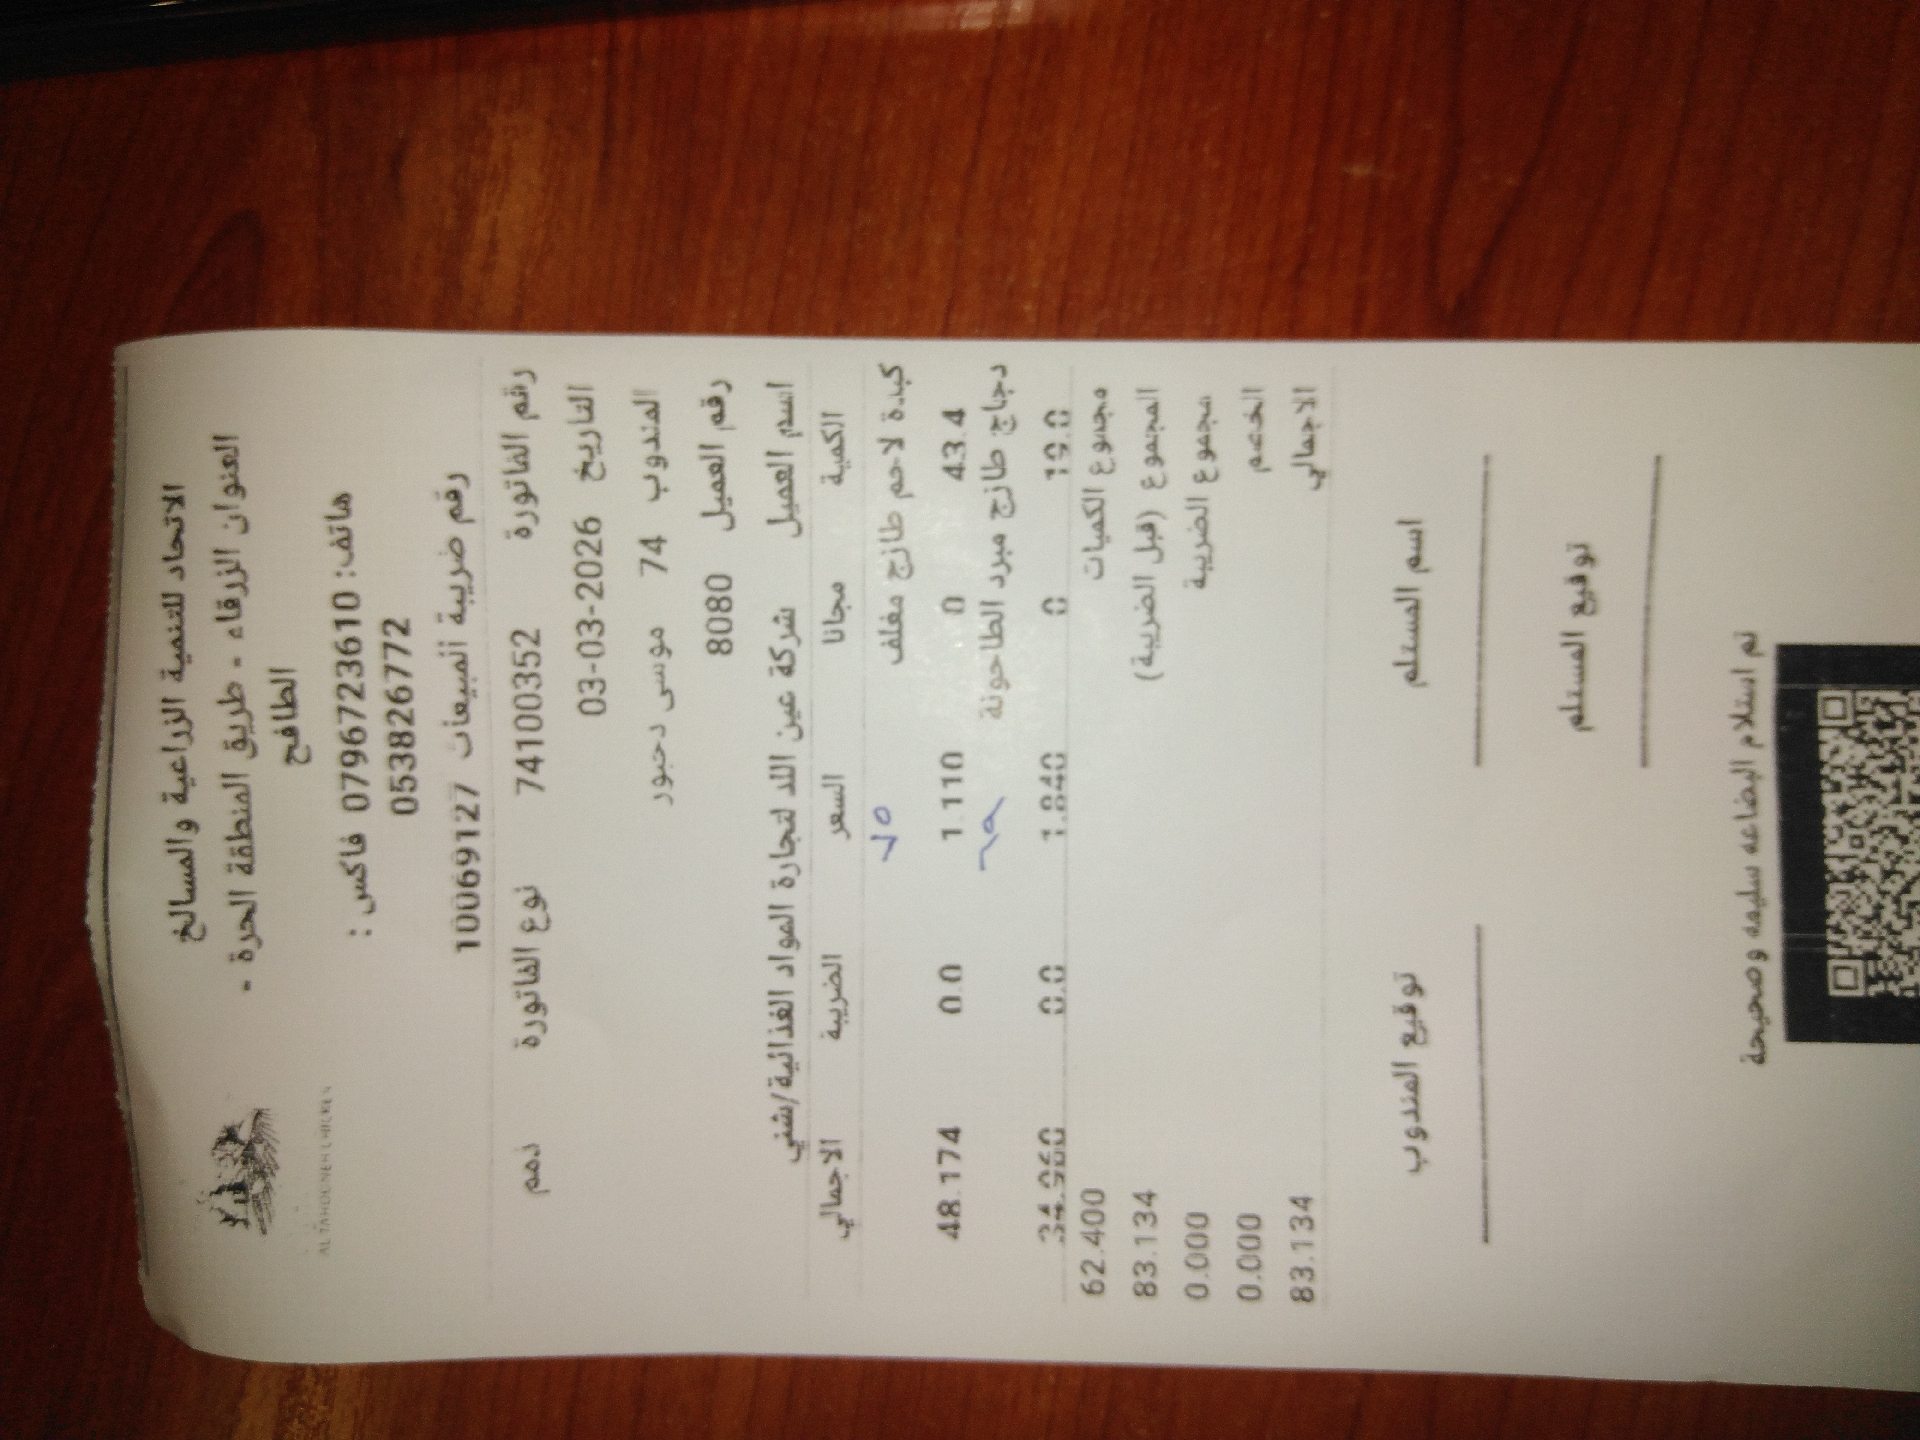 الاتحاد للتنمية الزراعية والمسالخ
العنوان الزرقاء - طريق المنطقة الحرة -
الطافح
هاتف: 0796723610 فاكس :
0538826772
رقم ضريبة المبيعات 10069127
AL TAHOUNEH CHICKEN
رقم الفاتورة 74100352 نوع الفاتورة ذمم
التاريخ 03-03-2026
المندوب 74 موسى دحبور
رقم العميل 8080
اسم العميل شركة عين اللد لتجارة المواد الغذائية/شني
الكمية مجانا السعر الضريبة الاجمالي
كبدة لاحم طازج مغلف
43.4 0 1.110 0.0 48.174
دجاج طازج مبرد الطاحونة
19.0 0 1.840 0.0 34.960
مجموع الكميات 62.400
المجموع (قبل الضريبة) 83.134
مجموع الضريبة 0.000
الخصم 0.000
الاجمالي 83.134
اسم المستلم توقيع المندوب
توقيع المستلم
تم استلام البضاعه سليمه وصحيحة